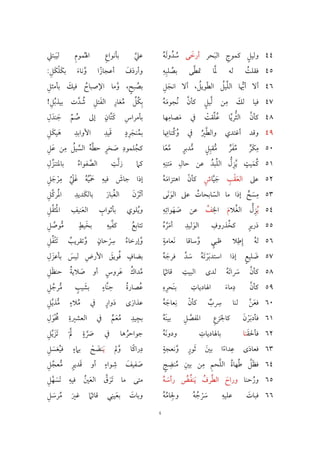 ٤٤ وليلٍ كموجِ البَحر أرخَى سُدُولَهُ عليَّ بأنواعِ الهُمومِ ليَبتلي
٤٥ فقلتُ له لمَّا تمطَّى بصُلبِهِ وأردَفَ أعجازًا وناءَ بكَلْكَلِ
٤٦ ألا أيُّها اللَّيلُ الطويلُ، ألا انجَلِ بصُبحٍ، وما الإصباحُ فيكَ بأمثلِ
٤٧ فيا لكَ مِن لَيلٍ كأنَّ نُجومَهُ بكُلِّ مُغارِ الفَتلِ شُدَّت بيذبُلِ
٤٨ كأنَّ الثُّريَّا عُلِّقَتْ في مَصامِها بأمراسِ كتَّانٍ إلى صُمِّ جَندَلِ
٤٩ وقد أغتدي والطَّيرُ في وُكُناتِها بمُنجَرِدٍ قَيدِ الأوابدِ هَيكَلِ
٥٠ مِكَرٍّ مِفَرٍّ مُقبلٍ مُدبِرٍ مَعًا كجُلمودِ صَخرٍ حطَّهُ السَّيلُ من عَلِ
٥١ كُمَيتٍ يُزِلُّ اللِّبدُ عن حالِ مَتنِهِ كما زلَّتِ الصَّفواءُ بالمُتنزِّلِ
٥٢ على العَقبِ جَيَّاشٍ كأنَّ اهتزامَهُ إذا جاشَ فيهِ حَميُهُ غَليُ مِرْجَلِ
٥٣ مِسَحٍّ إذا ما السَّابحاتُ على الوَنى أثَرْنَ الغُبارَ بالكَديدِ المُركَّلِ
٥٤ يُزِلُّ الغُلامَ الخِفَّ عن صَهَواتِهِ ويُلوي بأثوابِ العَنيفِ المُثقَّلِ
٥٥ دَريرٍ كخُذروفِ الوليدِ أمرَّهُ تتابعُ كفَّيهِ بخَيطٍ مُوصَّلِ
٥٦ لهُ إطلا ظبيٍ وساقا نعامةٍ وإرخاءُ سِرْحانٍ وتقريبُ تَتْفُلِ
٥٧ ضليعٍ إذا استدبرتَهُ سَدَّ فرجَهُ بضافٍ فُويقَ الأرضِ ليسَ بأعزلِ
٥٨ كأنَّ سَراتَهُ لدى البيتِ قائمًا مَداكُ عروسٍ أو صَلايةُ حنظلِ
٥٩ كأنَّ دماءَ الهادياتِ بنَحرِهِ عُصارةُ حِنَّاءٍ بشَيبٍ مُرجَّلِ
٦٠ فعنَّ لنا سِربٌ كأنَّ نِعاجَهُ عذارَى دَوارٍ في مُلاءٍ مُذيَّلِ
٦١ فأدبَرْنَ كالجَزعِ المفصَّلِ بينَهُ بجِيدِ مُعَمٍّ في العشيرةِ مُخْوَلِ
٦٢ فألحَقَنا بالهادياتِ ودونَهُ جَواحرُها في صَرَّةٍ لم تُزَيَّلِ
٦٣ فعادَى عِداءً بينَ ثورٍ ونَعجةٍ دِراكًا ولم يُنضَحْ بماءٍ فيُغسَلِ
٦٤ فظلَّ طُهاةُ اللَّحمِ من بينِ مُنضِجٍ صَفيفَ شِواءٍ أو قَديرٍ مُعجَّلِ
٦٥ ورُحنا وراحَ الطِّرفُ ينفُضُ رأسَهُ متى ما تَرَقَّ العَينُ فيهِ تَسهَّلِ
٦٦ فباتَ عليهِ سَرجُهُ ولجامُهُ وباتَ بعَيني قائمًا غيرَ مُرسَلِ
٤